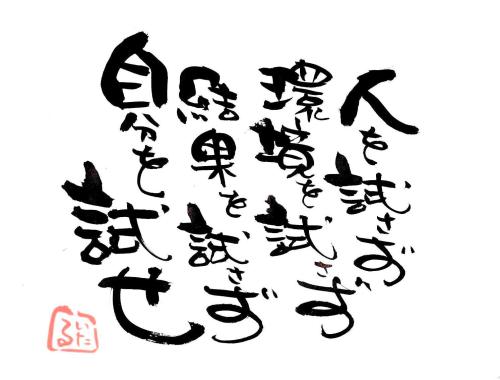 人を試さず
環境を試さず
結果を試さず
自分を試せ